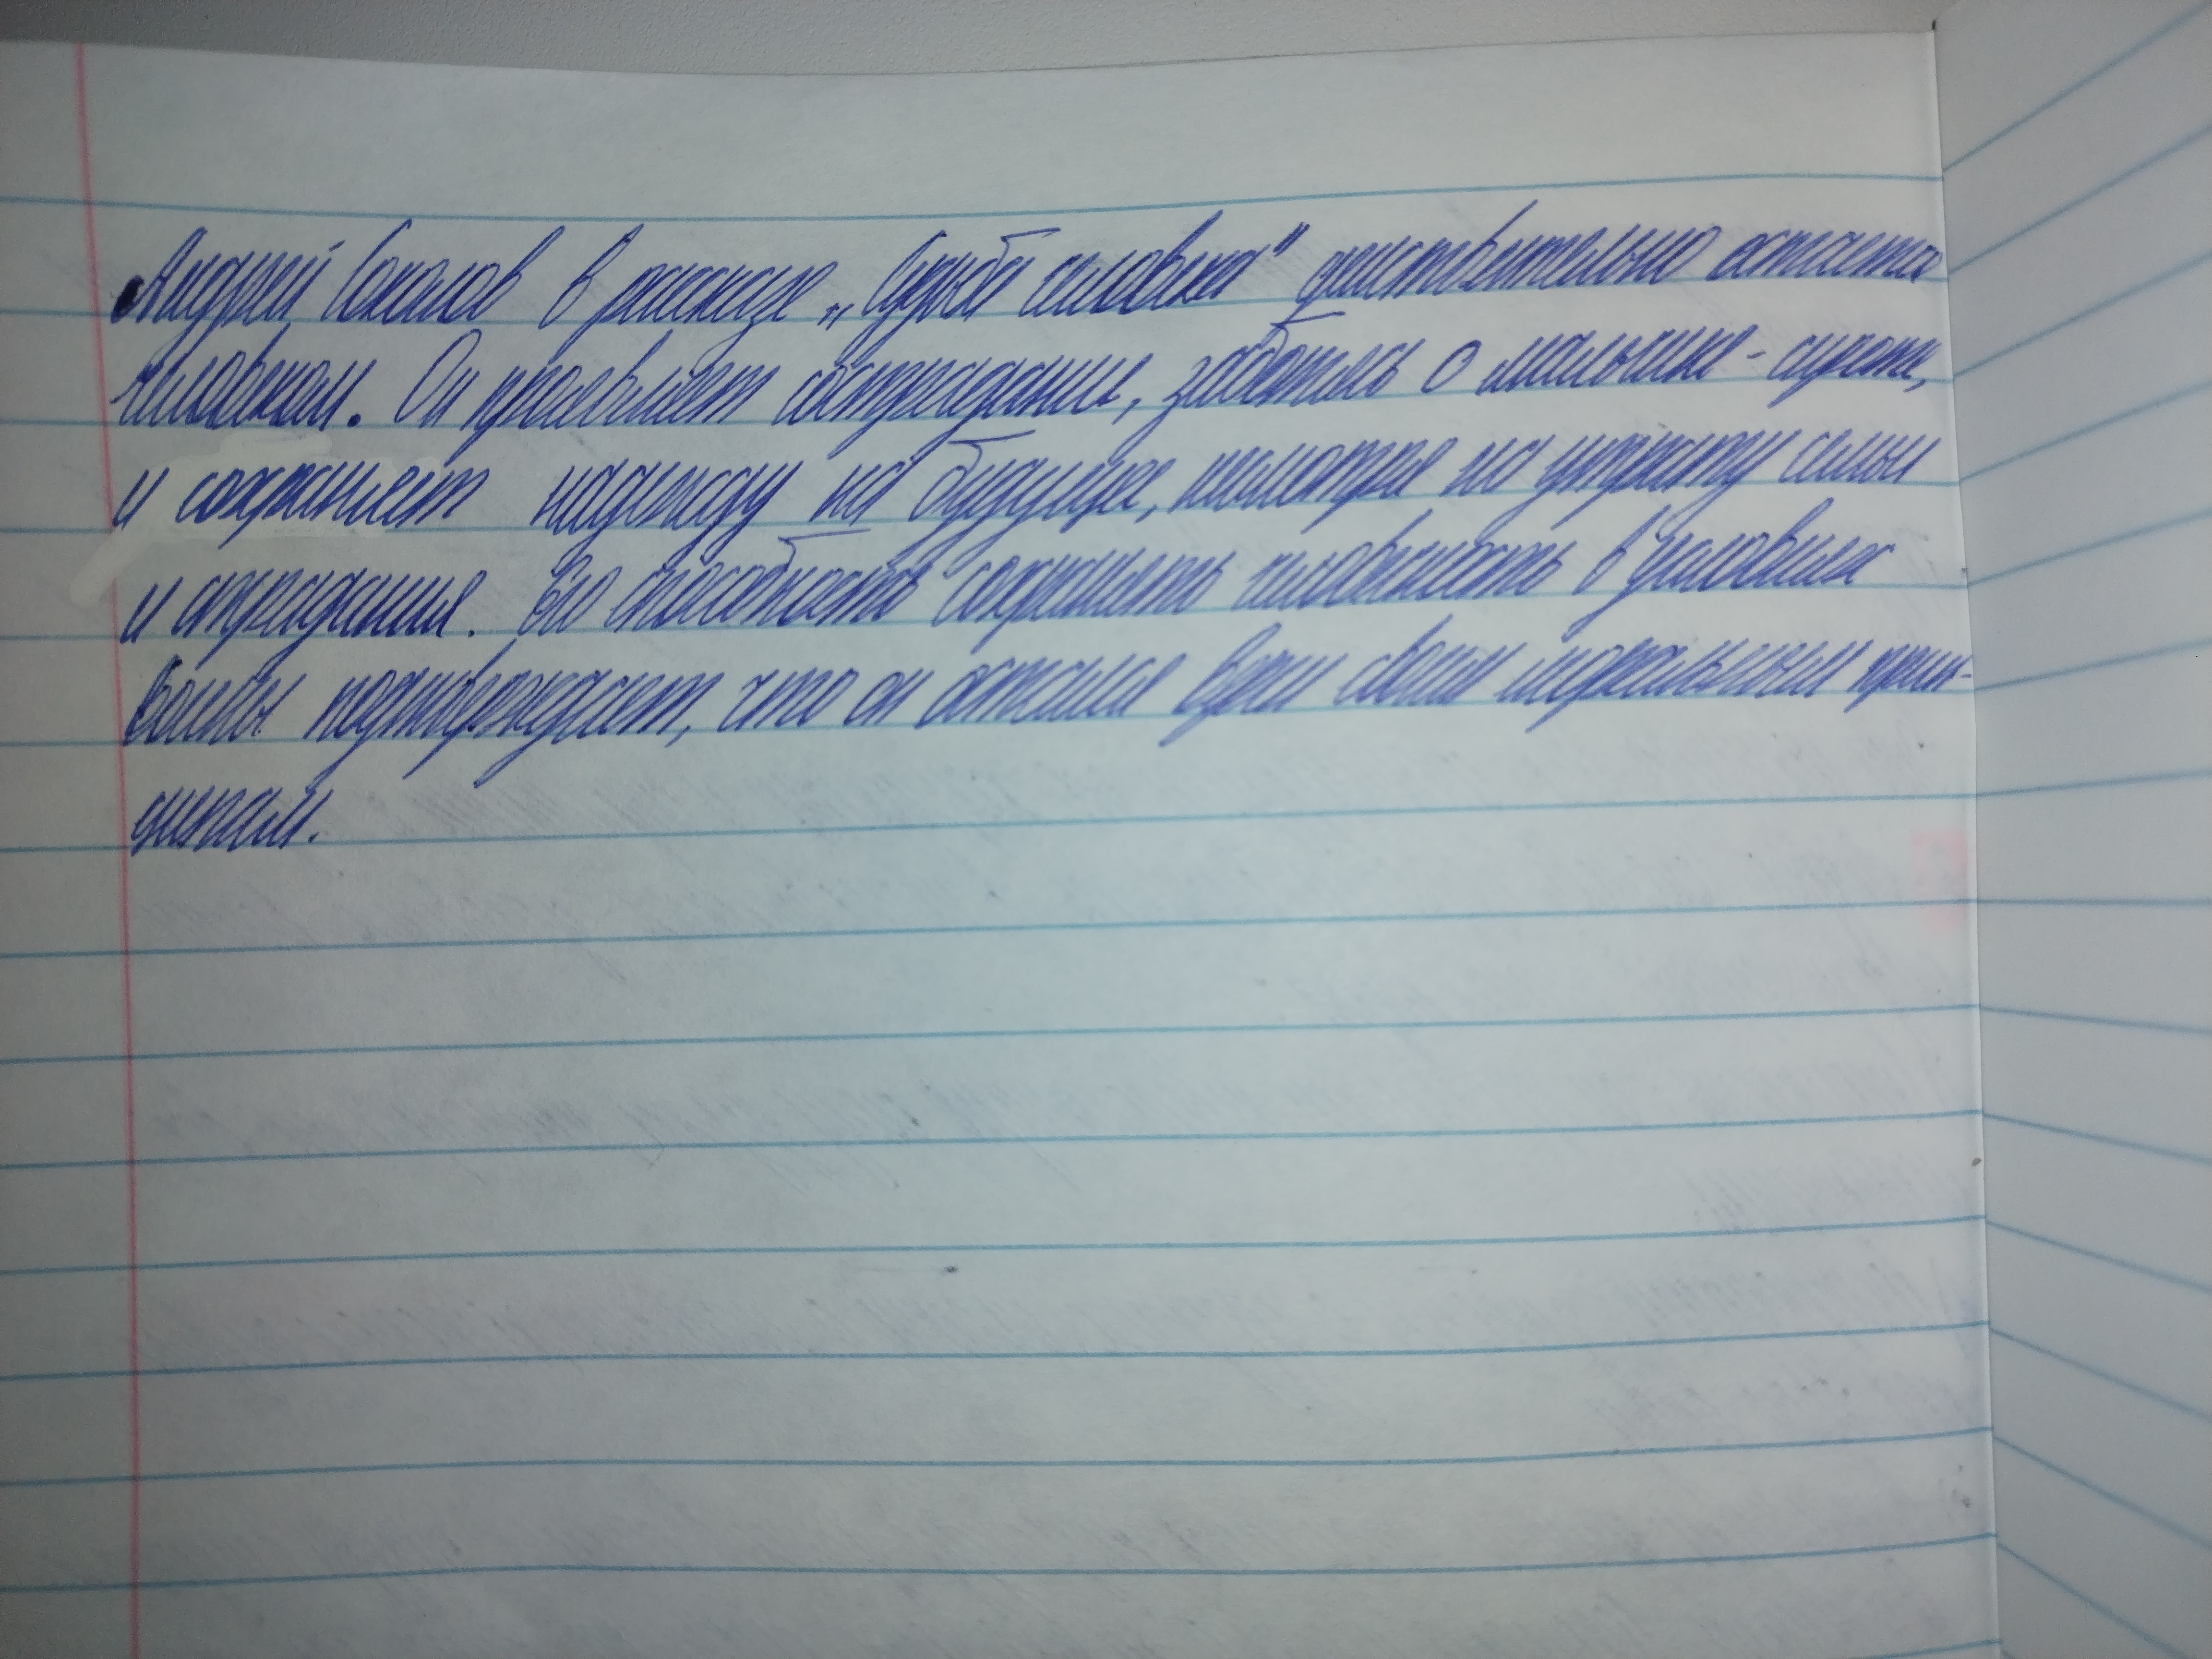 Андрей Соколов в рассказе „Судьба человека" действительно остается
человеком. Он проявляет сострадание, заботясь о мальчике-сироте,
и сохраняет надежду на будущее, несмотря на утрату семьи
и страдания. Его способность сохранять человечность в условиях
войны подтверждает, что он остался верен своим моральным прин-
ципам.